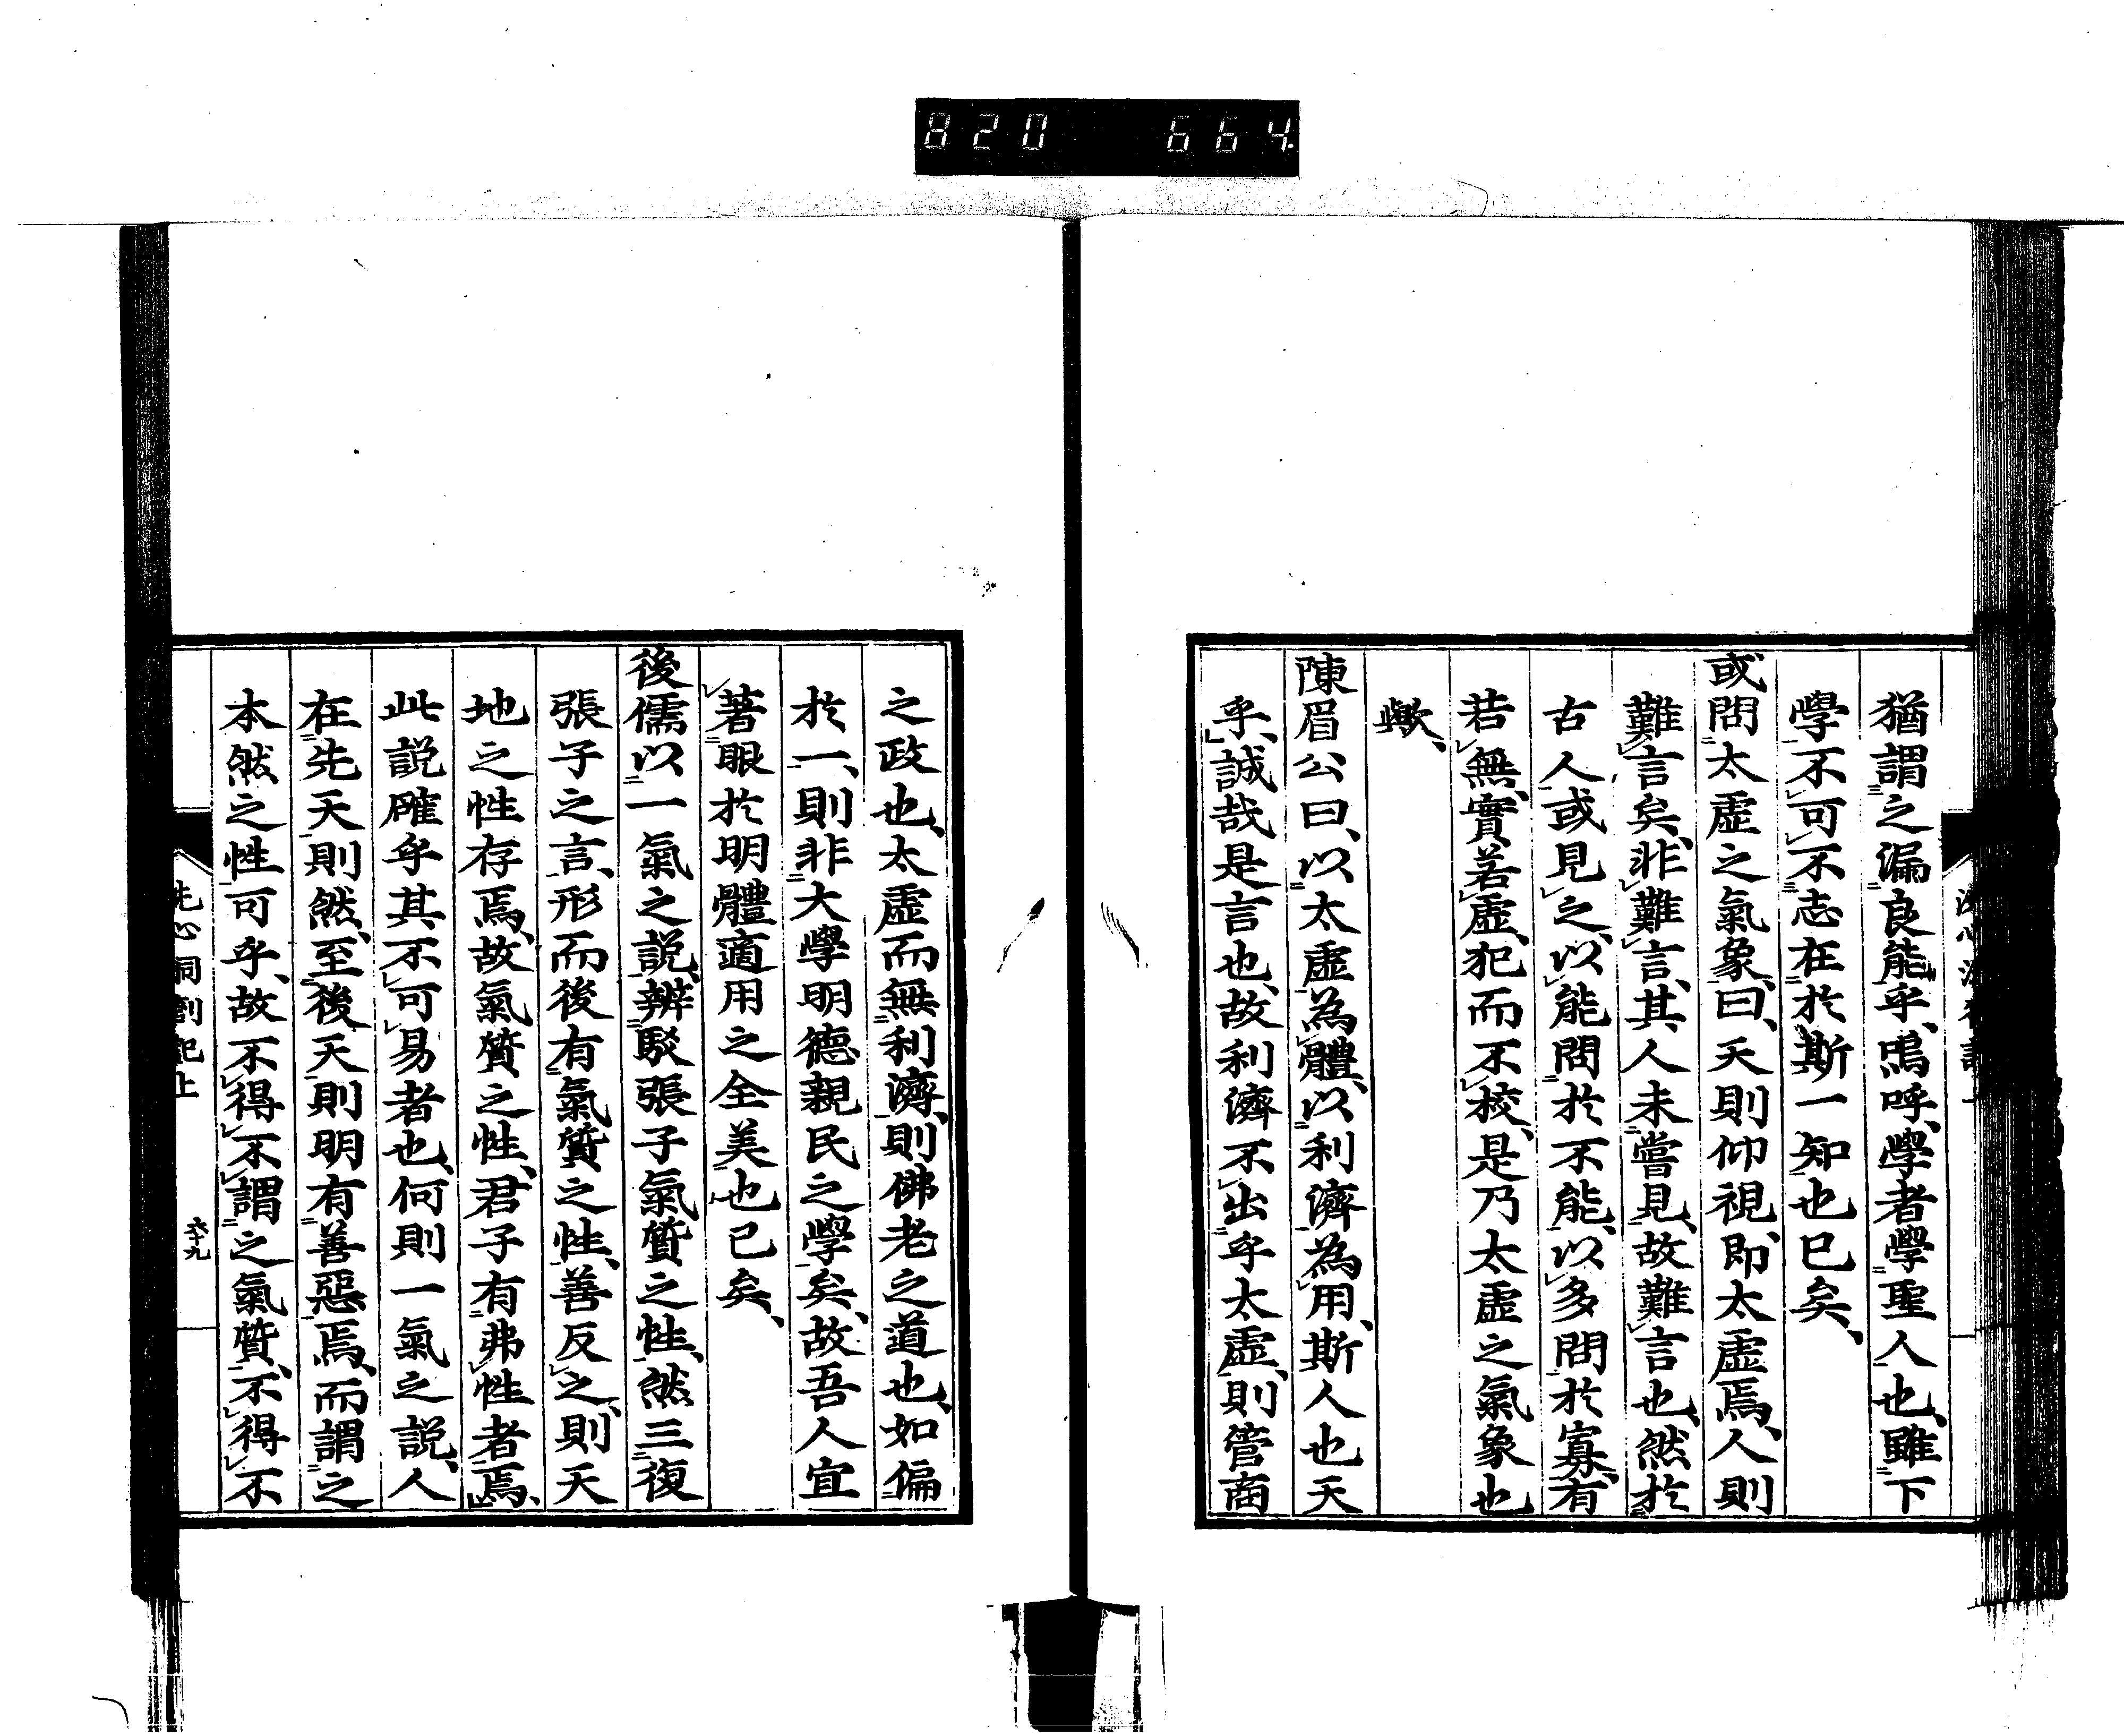 820 664.
猶謂之漏良能乎、嗚呼、學者學聖人也、雖下
學、不可不志在於斯一知也已矣、
或問太虛之氣象、曰、天則仰視、即太虛焉、人則
難言矣、非難言、其人未嘗見、故難言也、然於
古人或見之、以能問於不能、以多問於寡、有
若無、實若虛、犯而不校、是乃太虛之氣象也
歟、
陳眉公曰、以太虛為體、以利濟為用、斯人也天
乎、誠哉是言也、故利濟不出乎太虛、則管商
之政也、太虛而無利濟、則佛老之道也、如偏
於一、則非大學明德親民之學矣、故吾人宜
著眼於明體適用之全美也已矣、
後儒以一氣之説、辨駁張子氣質之性、然三復
張子之言、形而後有氣質之性、善反之、則天
地之性存焉、故氣質之性、君子有弗性者焉、
此説確乎其不可易者也、何則一氣之説、人
在先天則然、至後天則明有善惡焉、而謂之
本然之性可乎、故不得不謂之氣質、不得不
洗心洞劄記上
六十九